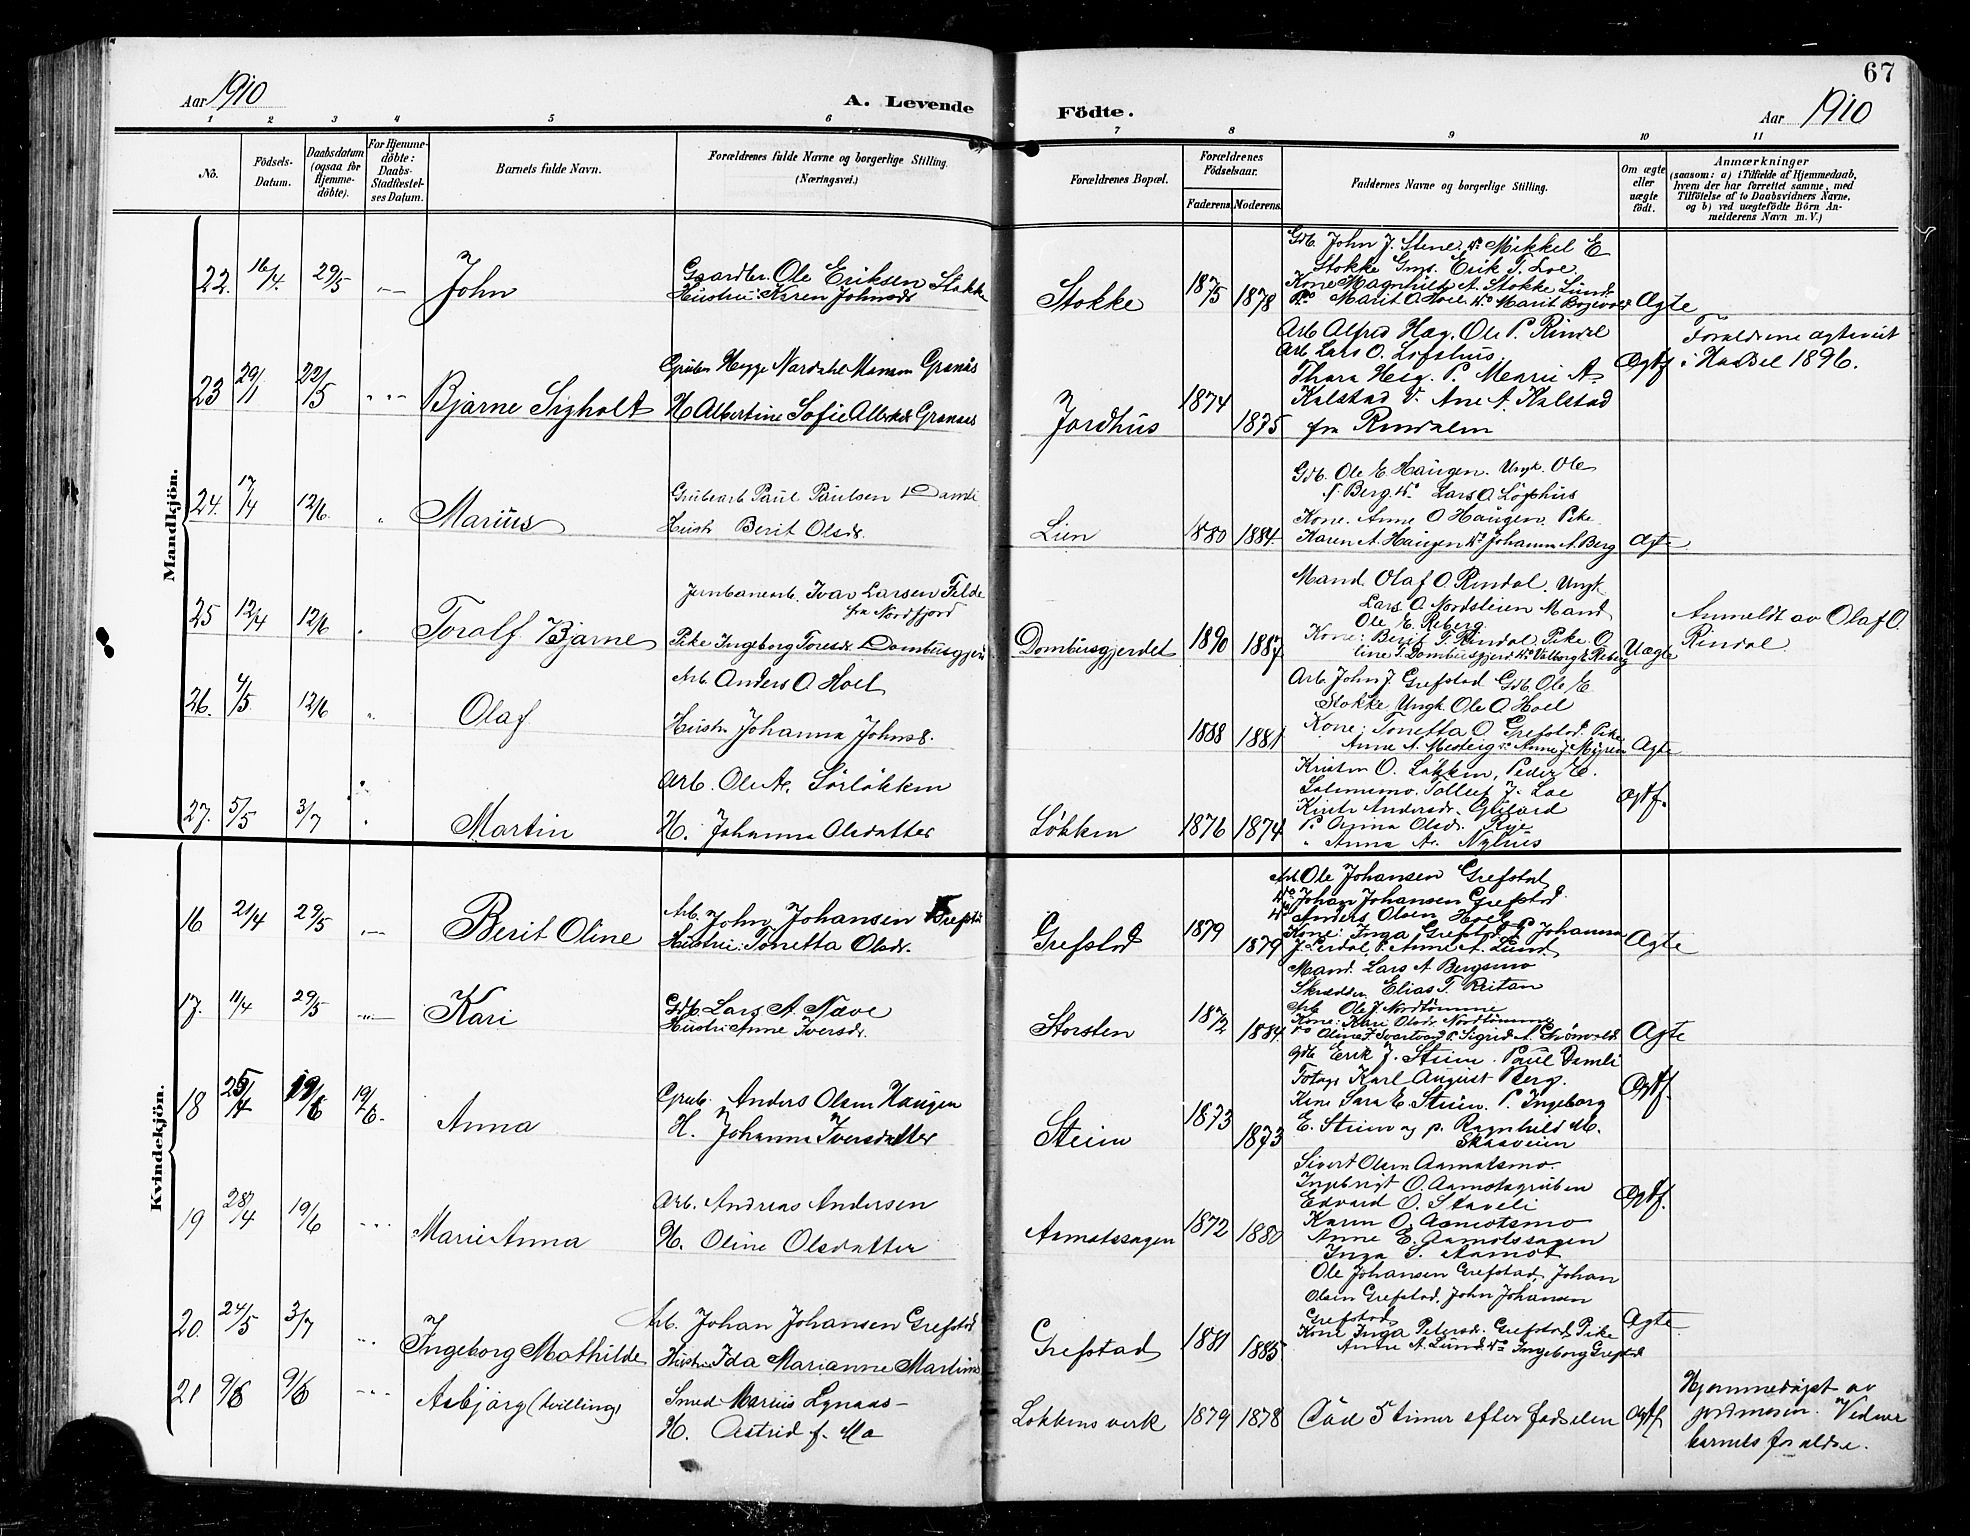 67
Aar 1910
A. Levende Födte.
Aar 1910
1 2 3 4 5 6 7 8 9 10 11
No.
Födsels-Datum.
Daabsdatum (ogsaa for Hjemmedöbte).
For Hjemmedöbte: Daabs-Stadfæstelses Datum.
Barnets fulde Navn.
Forældrenes fulde Navne og borgerlige Stilling. (Næringsvei.)
Forældrenes Bopæl.
Forældrenes Födselsaar.
Faderens. Moderens.
Faddernes Navne og borgerlige Stilling.
Om ægte eller uægte födt.
Anmærkninger
(saasom: a) i Tilfælde af Hjemmedaab,
hvem der har forrettet samme, med
Tilföielse af to Daabsvidners Navne,
og b) ved uægtefödte Börn Anmelderens Navn m. V.)
Mandkjön.
22. 16/4. 29/5 John
Gaardbr. Ole Eriksen Stokke
Hustru: Karen Johnsdr
Stokke 1875 1878
Gdb. John J. Stene. Mikkel E
Stokke Gms. Erik T. Loe
Kone Magnhild A. Stokke Lund.
Marit O. Hoel Marit
Ægte
23 29/11 22/5 Bjarne Sigholt
Albertine Sofie Granaas
Jordhus 1874 1875
Arb Alfred Hæg. Ole P. Rindal
Arb Lars O. Löfshus.
Thora Heg. P. Marie A
Kalstad Ane A. Kalstad
fra Rindalen
Ægtf
Forældrene ægteviet
i Hadsel 1896.
24. 17/4 12/6. Marius
Grubearb Paul Paulsen Damli
Hustr Berit Olsdr.
Lien 1880 1884.
Gdb. Ole E Haugen. Ungk. Ole
Berg. Lars O. Löfshus
Kone. Anne O Haugen. Pike
Karen A. Haugen Johanna A. Berg
Ægte
25 12/4 12/6 Toralf Bjarne
Jernbanearb. Ivar Larsen Felde
fra Nordfjord
Pike Ingeborg Toresdr Dombusgjerd
Dombusgjerdet 1890 1887
Mand. Olaf O. Rindal. Ungk
Lars O. Nordsleien Mand
Ole E. Reberg
Kone: Berit T. Rindal. Pike O
line T. Dombusgjerd Valborg E. Reberg
Uægte
Anmeldt av Olaf O.
Rindal.
26. 4/5. 12/6 Olaf
Arb. Anders O. Hoel
Hustr. Johanna Johnsd.
1888 1881
Arb. John J. Grefstad Gdb. Ole E.
Stokke Ungk. Ole O. Hoel
Kone: Tonetta O Grefstad. Pike
Anne A. Anne J. Myren
Ægte
27. 5/5 3/7 Martin
Arb. Ole A. Sörlökken
H. Johanna Olsdatter
Lökken 1876 1874
Kristen O. Lökken, Peder E.
Solemsmo. Tollef J. Loe
Andersdr.
P. Anna Olsdr. Rye
" Anna A. Nyhus
Ægtf.
Kvindekjön.
16 21/4 29/5 Berit Oline
Arb. John Johansen Grefstad
Hustru: Tonetta Olsdr.
Grefstad 1879 1879
Arb Ole Johansen Grefstad
Johan Johansen Grefstad.
Anders Olsen Hoel
Kone: Inga Grefstad P Johanna
P. Anne A. Lund.
Ægte
17. 11/4 29/5 Kari
Gdb. Lars A. Næve
Hustru: Anne Iversdr.
Storsten 1872 1884.
Mand. Lars A Bergsmo
Skrædder Elias T. Reitan
Arb Ole J. Nordtömme
Kone: Kari Olsdr. Nordtömme
Oline P. Sigrid A. Grönvold
Ægte
18 25/4 19/6 19/6. Anna
Grub. Anders Olsen Haugen
H. Johanna Iversdatter
Steien 1873 1873
gdb Erik J. Steien. Paul Damli
Fotogr Karl August Berg.
Kone Sara E. Steien. P. Ingeborg
E. Steien og p. Ragnhild M.
Skasveien
Ægtf.
19 28/4 19/6 Marie Anna
Arb. Andreas Andersen
H. Oline Olsdatter
Aamotssagen 1872 1880
Sivert Olsen Aamotsmo.
Ingebrigt O. Aamotsgruben
Edvard O. Staveli
Karen O. Aamotsmo
Anne E. Aamotssagen
Inga S. Aamot
Ægtf.
20. 24/5 3/7 Ingeborg Mathilde
Arb. Johan Johansen Grefstad
Hustru Ida Marianne Martins
Grefstad 1881 1885
Ole Johansen Grefstad, Johan
Olsen Grefstad, John Johansen
Grefstad
Kone Inga Petersd. Grefstad Pike
Anne A. Lund Ingeborg Grefstad
Ægte
21 9/6 9/6 Asbjörg (tvilling)
Smed Marius Lynaas
H. Astrid f. Mo
Lökkens verk 1879 1878
Död 5 timer efter födselen
Ægtf
Hjemmedöpt av
jordmoren. Vidner
barnets forældre.